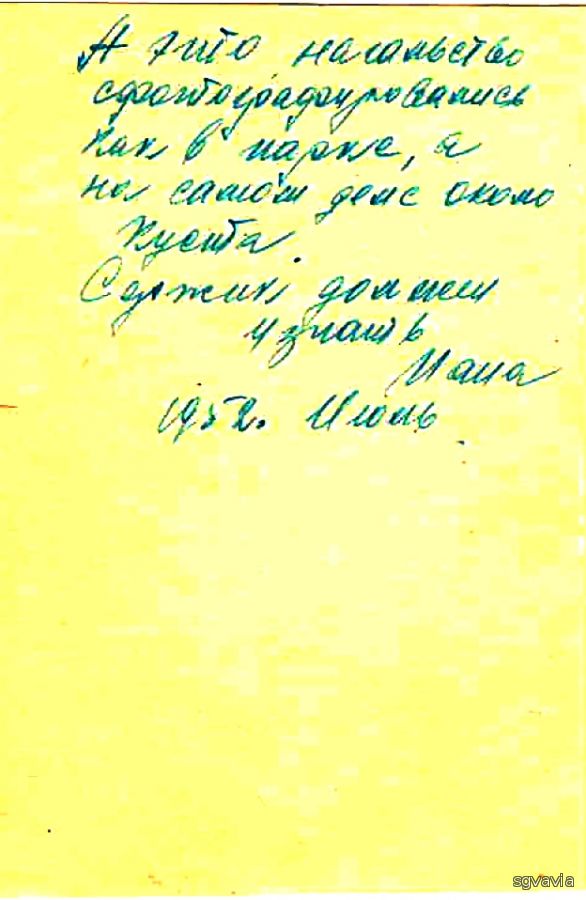 А это начальство
сфотографировались
как в парке, а
на самом деле около
куста.
Сержик должен
узнать
Мама
1952. Июль
sgvavia